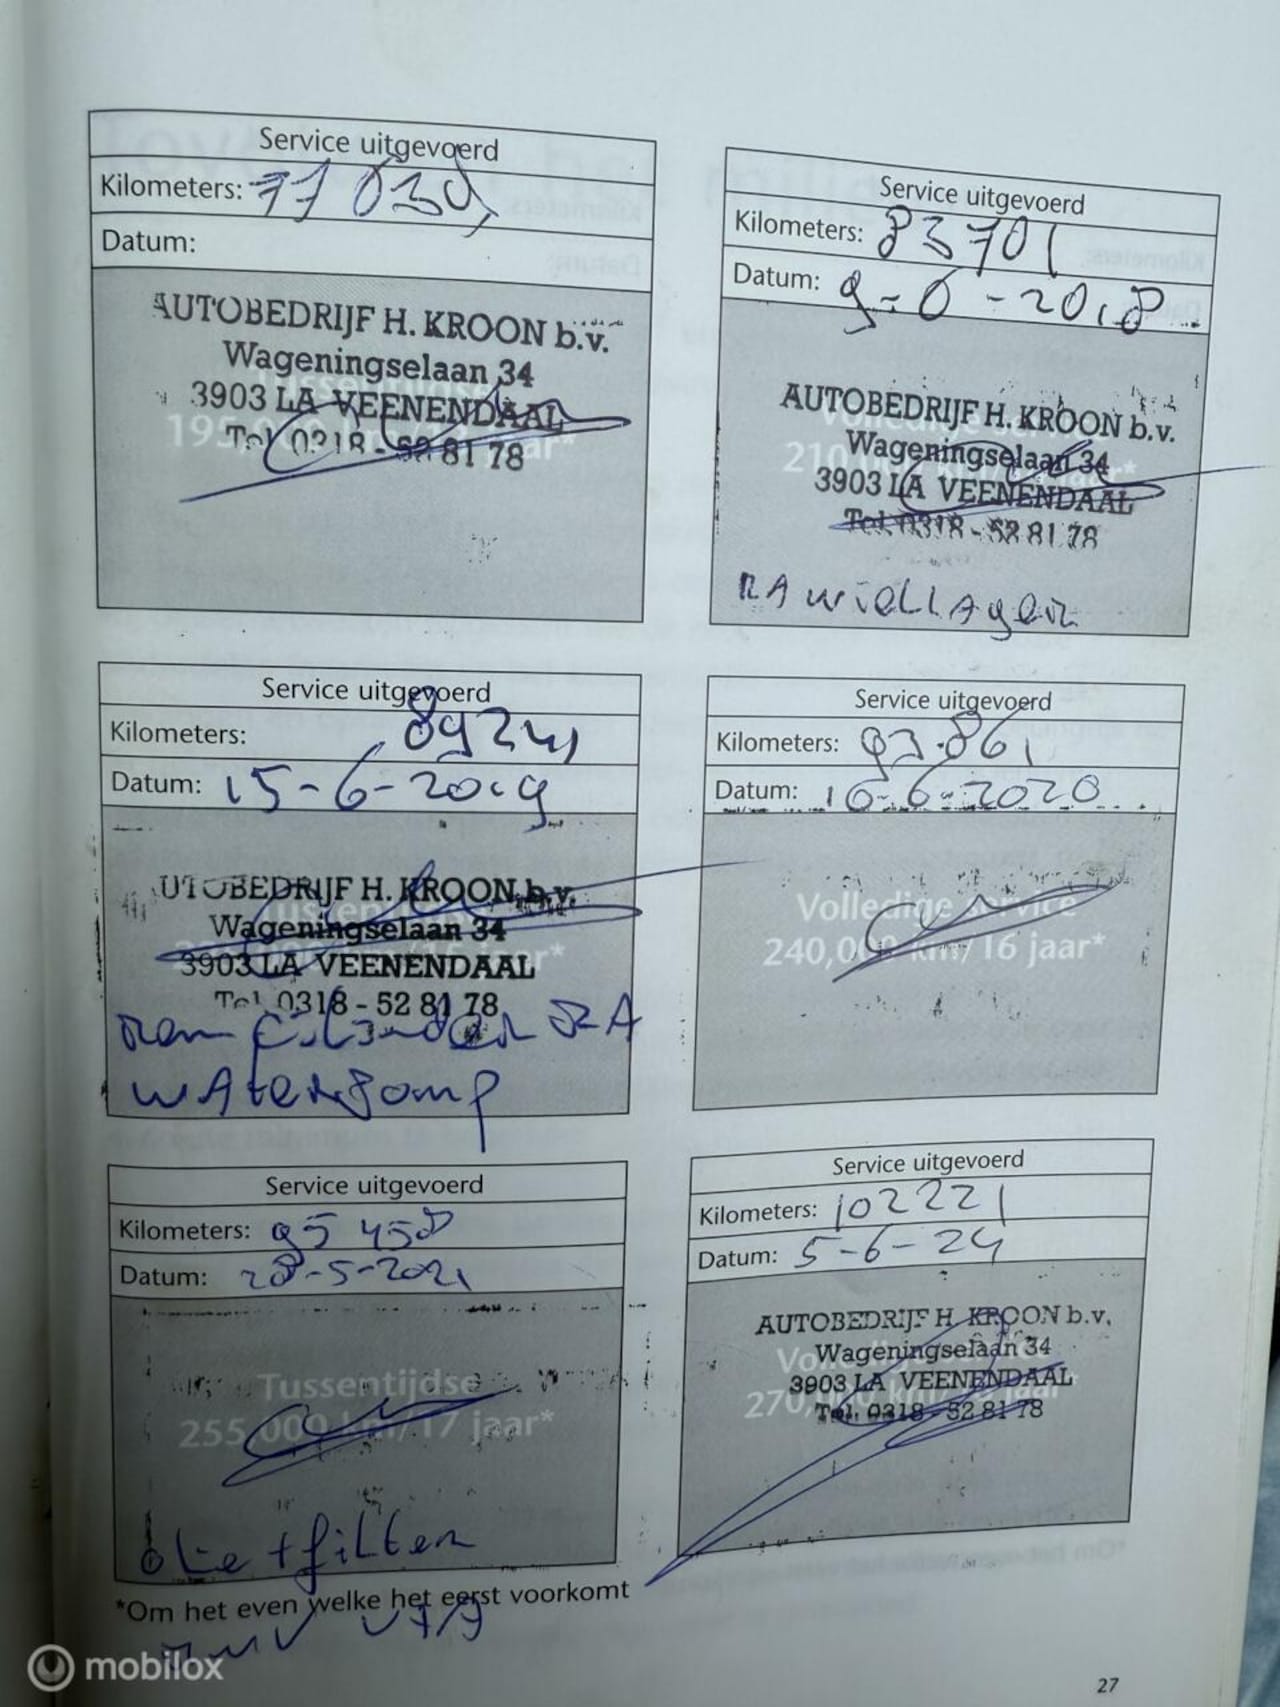 Service uitgevoerd
Kilometers: 77038
Datum:
AUTOBEDRIJF H. KROON b.v.
Wageningselaan 34
3903 LA VEENENDAAL
Tel. 0318 - 52 81 78
Tussentijdse
195,000 km/ jaar*
Service uitgevoerd
Kilometers: 83701
Datum: 9-6-2018
AUTOBEDRIJF H. KROON b.v.
Wageningselaan 34
3903 LA VEENENDAAL
Tel. 0318 - 52 81 78
Volledige service
210,000 km/ jaar*
RA wiellager
Service uitgevoerd
Kilometers: 89241
Datum: 15-6-2019
UTOBEDRIJF H. KROON b.v.
Wageningselaan 34
3903 LA VEENENDAAL
Tel. 0318 - 52 81 78
Tussentijdse
jaar*
Rem cilinder RA
waterpomp
Service uitgevoerd
Kilometers: 93.861
Datum: 16-6-2020
Volledige service
240,000 km/16 jaar*
Service uitgevoerd
Kilometers: 95458
Datum: 28-5-2021
Tussentijdse
255,000 km/17 jaar*
olie + filter
Service uitgevoerd
Kilometers: 102221
Datum: 5-6-24
AUTOBEDRIJF H. KROON b.v.
Wageningselaan 34
3903 LA VEENENDAAL
Tel. 0318 - 52 81 78
270,000 km/ jaar*
*Om het even welke het eerst voorkomt
27
mobilox